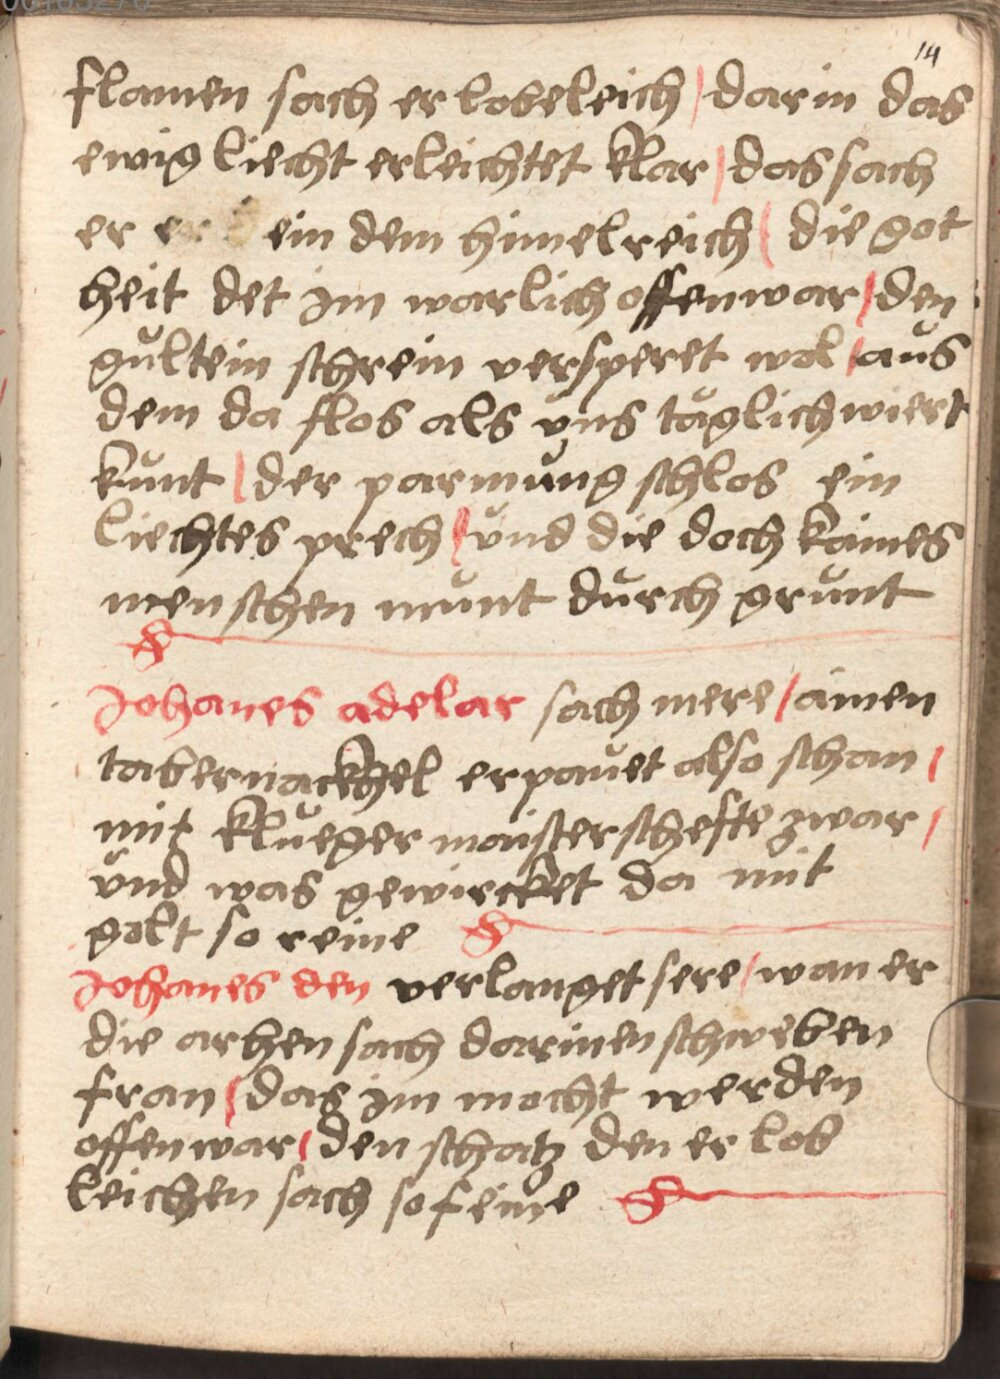 14
flamen sach er lobeleich | dar in das
ewig liecht erleichtet klar | das sach
er ein dem himelreich | die got
heit det im warlich offenwar | den
gůltein schrein versperet wol | aůs
dem da flos als ůns täglich wiert
kůnt | der parmůng schlos ein
liechtes prech | ůnd die doch kaines
menschen můnt důrch grůnt
Johanes adelar sach mere | ainen
tabernackhel erpaůet also schan |
mit klůeger maisterschefte zwar |
ůnd was gewircket da mit
golt so reine
Johanes den verlanget sere | wan er
die arhen sach darinen schweben
fran | das im mocht werden
offenwar | den schatz den er lob
leichen sach so feine